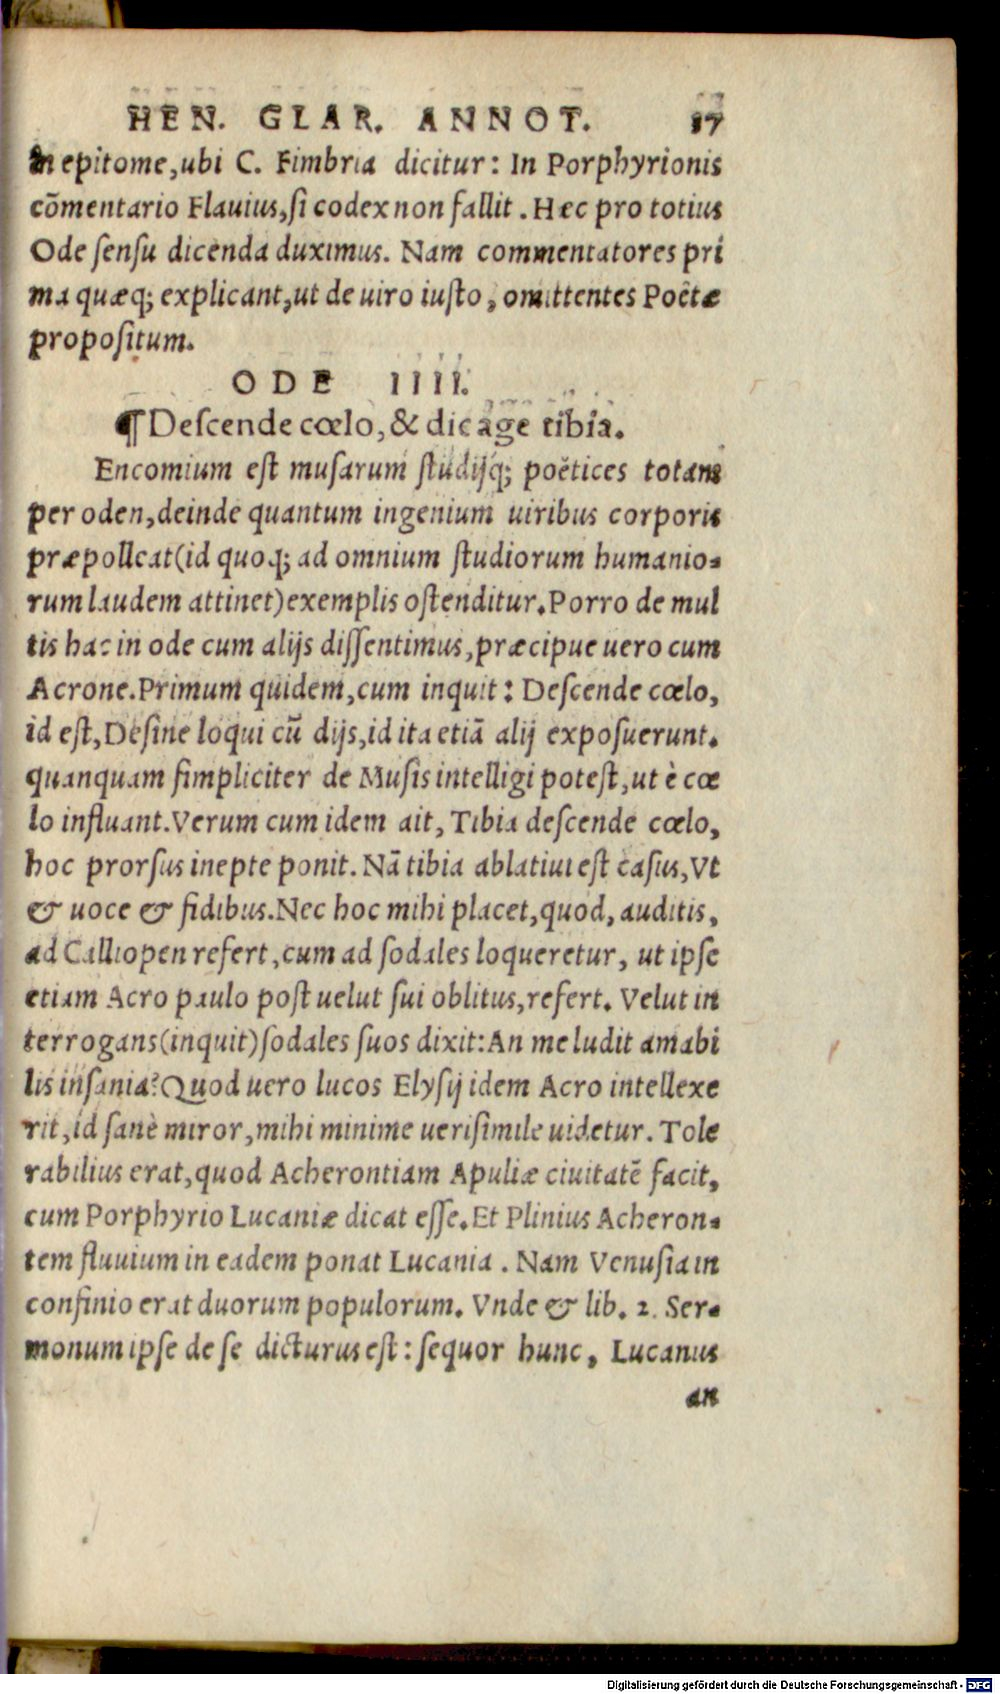 HEN. GLAR. ANNOT. 87
in epitome, ubi C. Fimbria dicitur: In Porphyrionis
cōmentario Flauius, ſi codex non fallit. Hæc pro totius
Ode ſenſu dicenda duximus. Nam commentatores pri
ma quæq; explicant, ut de uiro iuſto, omittentes Poëtæ
propoſitum.
ODE IIII.
¶ Deſcende cœlo, & dic age tibia.
Encomium eſt muſarum ſtudijq; poëtices totam
per oden, deinde quantum ingenium uiribus corporis
præpolleat (id quoq; ad omnium ſtudiorum humanio-
rum laudem attinet) exemplis oſtenditur. Porro de mul
tis hac in ode cum alijs diſſentimus, præcipue uero cum
Acrone. Primum quidem, cum inquit: Deſcende cœlo,
id eſt, Deſine loqui cū dijs, id ita etiā alij expoſuerunt.
quanquam ſimpliciter de Muſis intelligi poteſt, ut è cœ
lo influant. Verum cum idem ait, Tibia deſcende cœlo,
hoc prorſus inepte ponit. Nā tibia ablatiui eſt caſus, Vt
& uoce & fidibus. Nec hoc mihi placet, quod, auditis,
ad Calliopen refert, cum ad ſodales loqueretur, ut ipſe
etiam Acro paulo poſt uelut ſui oblitus, refert. Velut in
terrogans (inquit) ſodales ſuos dixit: An me ludit amabi
lis inſania? Quod uero lucos Elyſij idem Acro intellexe
rit, id ſanè miror, mihi minime ueriſimile uidetur. Tole
rabilius erat, quod Acherontiam Apuliæ ciuitatē facit,
cum Porphyrio Lucaniæ dicat eſſe. Et Plinius Acheron-
tem fluuium in eadem ponat Lucania. Nam Venuſia in
confinio erat duorum populorum. Vnde & lib. 2. Ser-
monum ipſe de ſe dicturus eſt: ſequor hunc, Lucanus
an
Digitalisierung gefördert durch die Deutsche Forschungsgemeinschaft - DFG